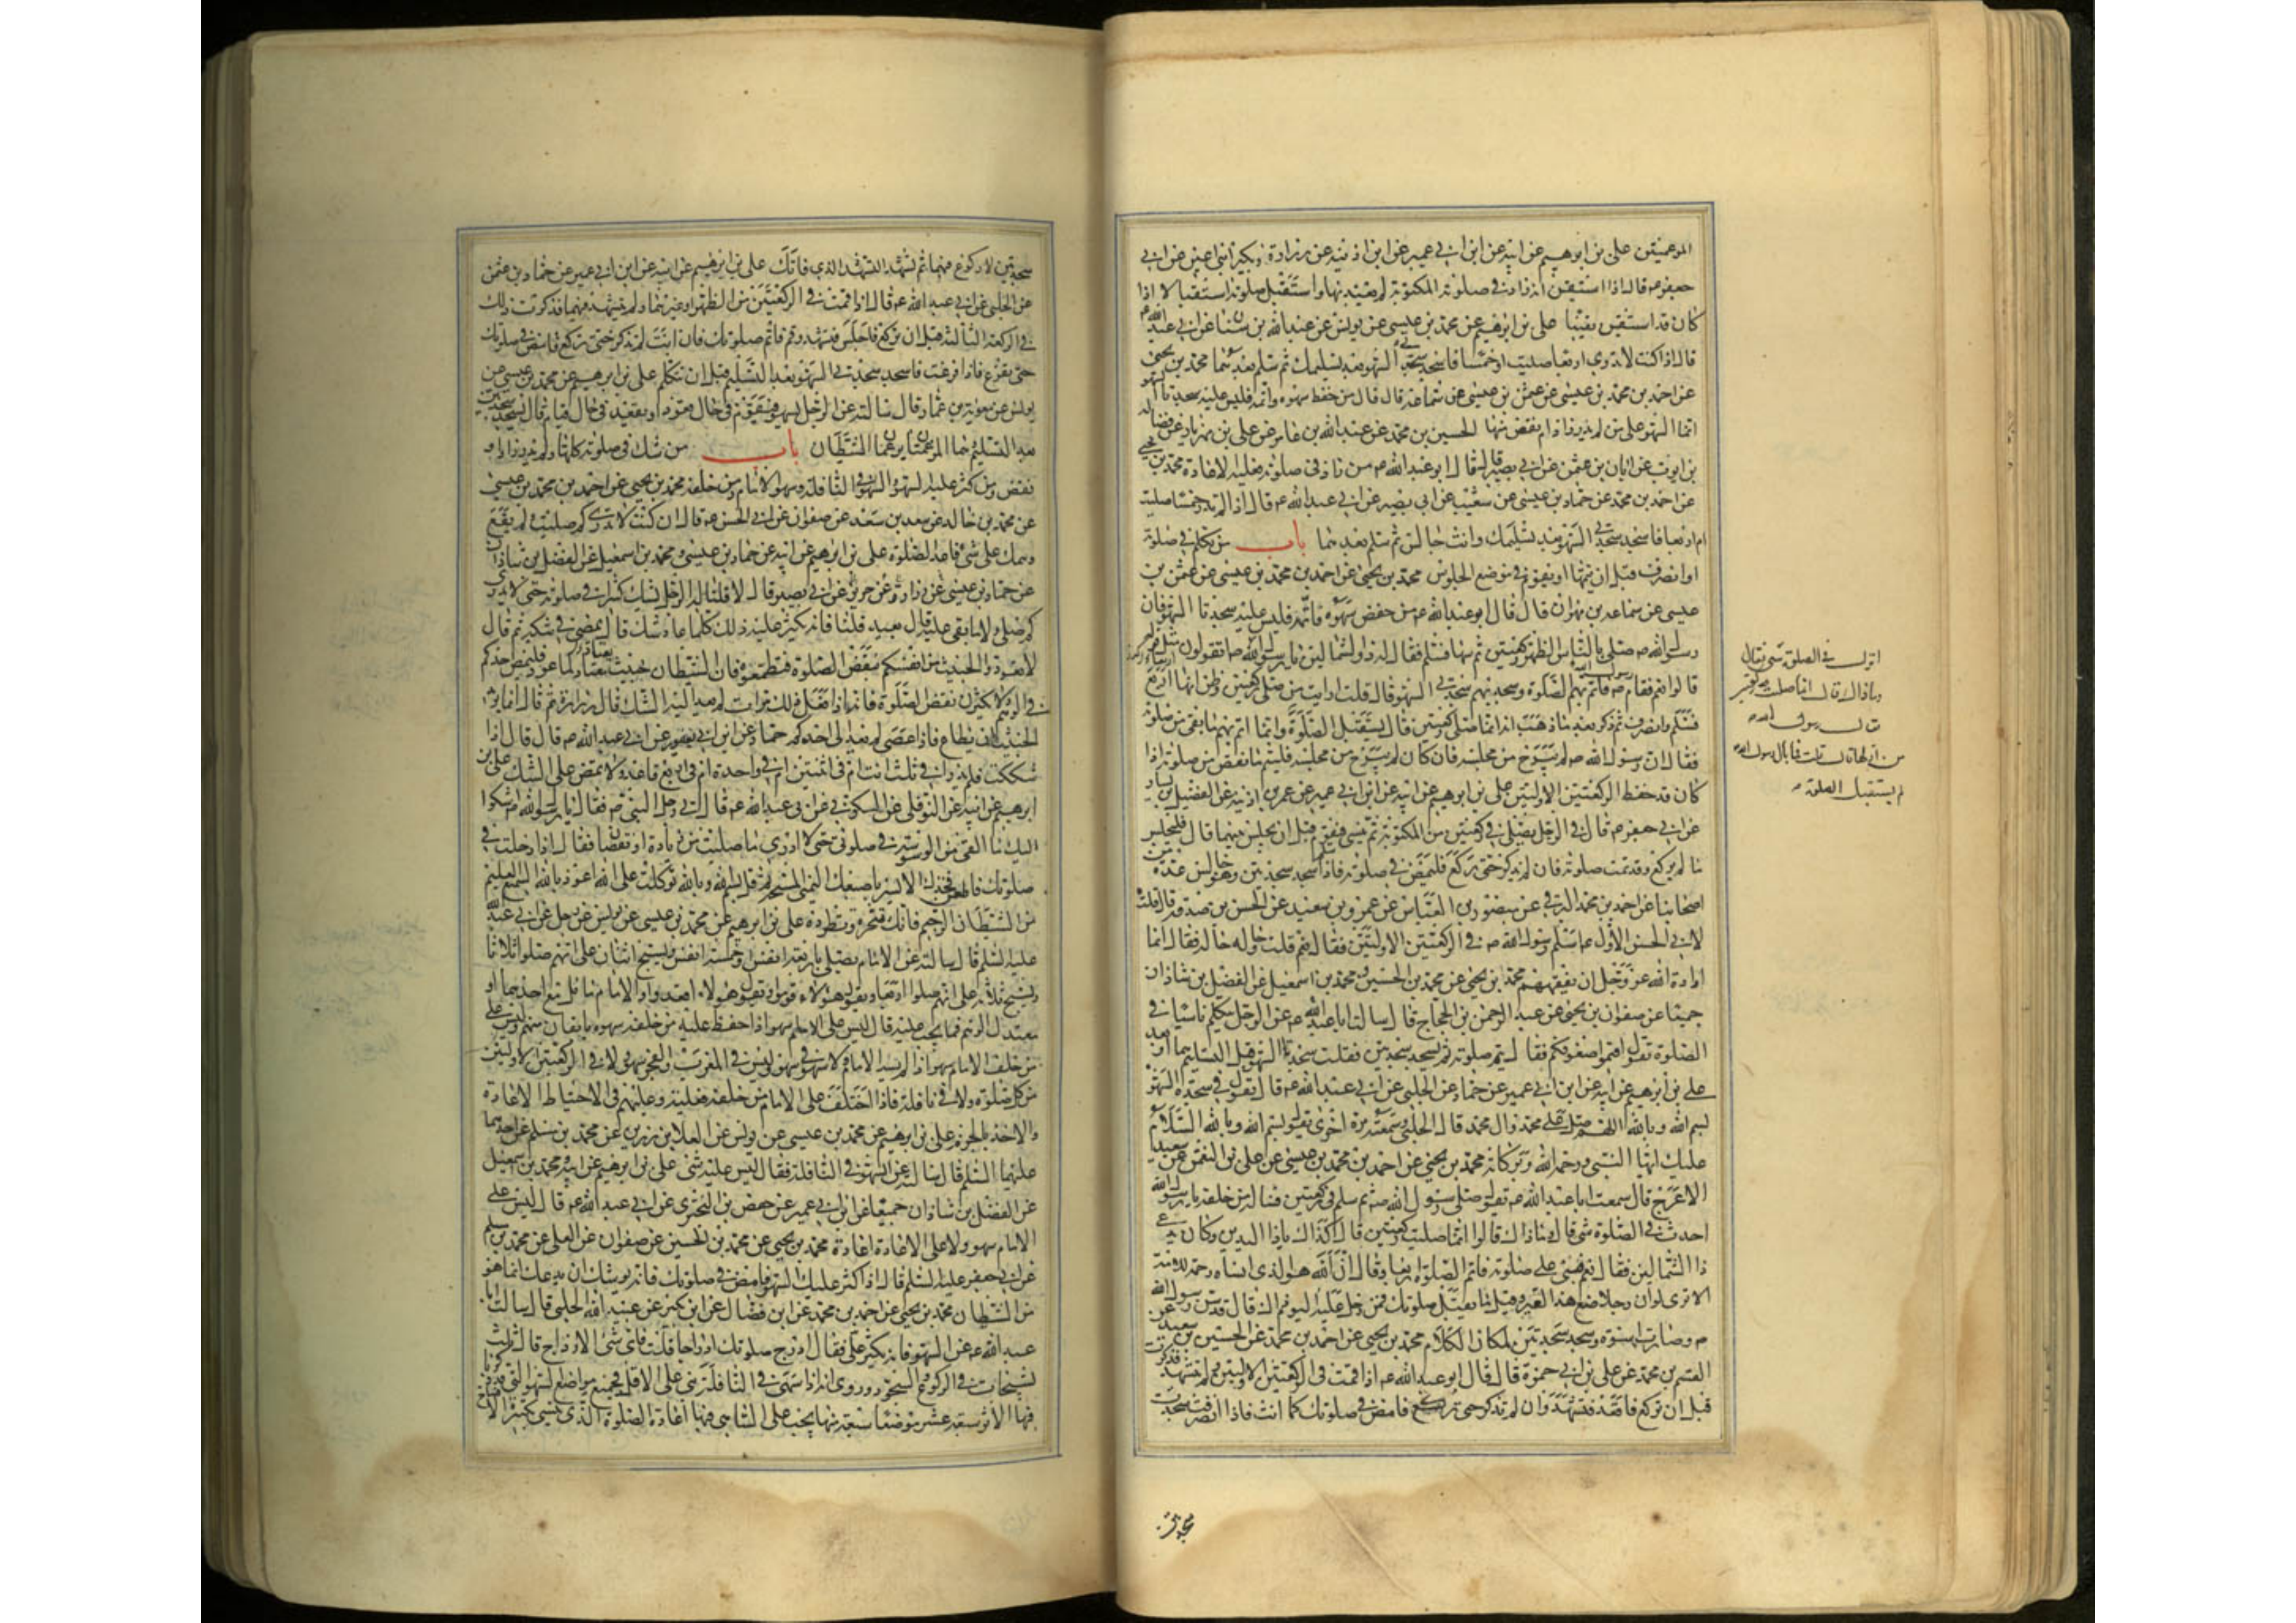 علي بن ابرهيم عن ابيه عن ابن ابي عمير عن ابن اذينه عن زرارة وبكير ابني اعين عن ابي
جعفر ع قال اذا استيقن انه زاد في صلوته المكتوبة لم يعتد بها واستقبل صلوته استقبالا اذا
كان قد استيقن يقينا علي بن ابرهيم عن محمد بن عيسى عن يونس عن عبد الله بن سنان عن ابي عبد الله ع
قال اذا كنت لا تدري اربعا صليت او خمسا فاسجد سجدتي السهو بعد تسليمك ثم سلم بعدهما محمد بن يحيى
عن احمد بن محمد بن عيسى عن عثمن بن عيسى عن سماعه قال قال من حفظ سهوه واتمه فليس عليه سجدتا السهو
انما السهو على من لم يدر زاد ام نقص منها الحسين بن محمد عن عبد الله بن عامر عن علي بن مهزيار عن فضاله
بن ايوب عن ابان بن عثمن عن ابي بصير قال قال ابو عبد الله ع من زاد في صلوته فعليه الاعادة محمد بن يحيى
عن احمد بن محمد عن حماد بن عيسى عن شعيب عن ابي بصير عن ابي عبد الله ع قال اذا لم تدر خمسا صليت
ام اربعا فاسجد سجدتي السهو بعد تسليمك وانت جالس ثم سلم بعدهما باب من تكلم في صلوته
او انصرف قبل ان يتمها او يقوم في موضع الجلوس محمد بن يحيى عن احمد بن محمد بن عيسى عن عثمن بن
عيسى عن سماعه بن مهران قال قال ابو عبد الله ع من حفظ سهوه فاتمه فليس عليه سجدتا السهو فان
رسول الله ص صلى بالناس الظهر ركعتين ثم سها فسلم فقال له ذو الشمالين يا رسول الله
فسلم وانصرف ثم ذكر بعد ما ذهب انه انما صلى ركعتين قال يستقبل الصلوة
فقال ان رسول الله ص لم يبرح من مجلسه فان كان لم يبرح من مجلسه فليتم ما نقص من صلوته اذا
كان قد حفظ الركعتين الاوليين علي بن ابرهيم عن ابيه عن ابن ابي عمير عن عمر بن اذينه عن الفضيل بن يسار
عن ابي جعفر ع قال في الرجل يصلي ركعتين من المكتوبة ثم ينسى فيقوم قبل ان يجلس بينهما قال فليجلس
ما لم يركع وقد تمت صلوته فان لم يذكر حتى ركع فليمض في صلوته فاذا سلم سجد سجدتين وهو جالس عدة من
اصحابنا عن احمد بن محمد البرقي عن منصور بن العباس عن عمرو بن سعيد عن الحسن بن صدقه قال قلت
لابي الحسن الاول ع اسلم رسول الله ص في الركعتين الاوليين فقال نعم قلت وحاله حاله فقال انما
اراد الله عز وجل ان يفقههم محمد بن يحيى عن محمد بن الحسين ومحمد بن اسمعيل عن الفضل بن شاذان
جميعا عن صفوان بن يحيى عن عبد الرحمن بن الحجاج قال سالت ابا عبد الله ع عن الرجل يتكلم ناسيا في
الصلوة يقول اقيموا صفوفكم فقال يتم صلوته ثم يسجد سجدتين فقلت سجدتا السهو قبل التسليم هما او بعد
علي بن ابرهيم عن ابيه عن ابن ابي عمير عن حماد عن الحلبي عن ابي عبد الله ع قال تقول في سجدة السهو
بسم الله وبالله اللهم صل على محمد وال محمد قال الحلبي وسمعته مرة اخرى يقول بسم الله وبالله السلام
عليك ايها النبي ورحمة الله وبركاته محمد بن يحيى عن احمد بن محمد بن عيسى عن علي بن النعمن عن سعيد
الاعرج قال سمعت ابا عبد الله ع يقول صلى رسول الله ص ثم سلم في ركعتين فساله من خلفه يا رسول الله
احدث في الصلوة شي قال وما ذاك قالوا انما صليت ركعتين قال اكذاك يا ذا اليدين وكان يدعى
ذا الشمالين فقال نعم فبنى على صلوته فاتم الصلوة اربعا وقال ان الله هو الذي انساه رحمة للامة
الا ترى لو ان رجلا صنع هذا لعير وقيل ما تقبل صلوتك فمن دخل عليه اليوم ذلك قال قد سن رسول الله
ص وصارت اسوة وسجد سجدتين لمكان الكلام محمد بن يحيى عن احمد بن محمد عن الحسين بن سعيد عن
القسم بن محمد عن علي بن ابي حمزة قال قال ابو عبد الله ع اذا قمت في الركعتين الاوليين ولم تتشهد فذكرت
قبل ان تركع فاقعد فتشهد وان لم تذكر حتى تركع فامض في صلوتك كما انت فاذا انصرفت سجدت
سجدتين لا ركوع فيهما ثم تشهد التشهد الذي فاتك علي بن ابرهيم عن ابيه عن ابن ابي عمير عن حماد بن عثمن
عن الحلبي عن ابي عبد الله ع قال اذا قمت في الركعتين من الظهر او غيرهما ولم تتشهد فيهما فذكرت ذلك
في الركعة الثالثة قبل ان تركع فاجلس فتشهد وقم فاتم صلوتك فان انت لم تذكر حتى تركع فامض في صلوتك
حتى تفرغ فاذا فرغت فاسجد سجدتي السهو بعد التسليم قبل ان تتكلم علي بن ابرهيم عن محمد بن عيسى عن
يونس عن معوية بن عمار قال سالته عن الرجل يسهو فيقوم في حال قعود او يقعد في حال قيام قال يسجد سجدتين
بعد التسليم وهما المرغمتان ترغمان الشيطان باب من شك في صلوته كلها ولم يدر زاد او
نقص ومن كثر عليه السهو والسهو في النافلة وسهو الامام ومن خلفه محمد بن يحيى عن احمد بن محمد بن عيسى
عن محمد بن خالد عن سعد بن سعد عن صفوان عن ابي الحسن ع قال ان كنت لا تدري كم صليت ولم يقع
وهمك على شي فاعد الصلوة علي بن ابرهيم عن ابيه عن حماد بن عيسى ومحمد بن اسمعيل عن الفضل بن شاذان
كم صلى ولا ما بقي عليه قال يعيد قلنا فانه يكثر عليه ذلك كلما عاد شك قال يمضي في شكه ثم قال
لا تعودوا الخبيث من انفسكم نقض الصلوة فتطمعوه فان الشيطان خبيث يعتاد لما عود فليمض احدكم
في الوهم ولا يكثرن نقض الصلوة فانه اذا فعل ذلك مرات لم يعد اليه الشك قال زرارة ثم قال انما يريد
الخبيث ان يطاع فاذا عصي لم يعد الى احدكم حماد عن ابن ابي يعفور عن ابي عبد الله ع قال قال اذا
شككت فلم تدر افي ثلث انت ام في اثنتين ام في واحدة ام في اربع فاعد ولا تمض على الشك علي بن
ابرهيم عن ابيه عن النوفلي عن السكوني عن ابي عبد الله ع قال اتى رجل النبي ص فقال يا رسول الله اشكوا
اليك ما القى من الوسوسة في صلوتي حتى لا ادري ما صليت من زيادة او نقصان فقال اذا دخلت في
صلوتك فاطعن فخذك الايسر باصبعك اليمنى المسبحة ثم قل بسم الله وبالله توكلت على الله اعوذ بالله السميع العليم
من الشيطان الرجيم فانك تنحره وتطرده علي بن ابرهيم عن محمد بن عيسى عن يونس عن رجل عن ابي عبد الله
عليه السلم قال سالته عن الامام يصلي باربعة انفس او خمسة انفس ويسبح اثنان على انهم صلوا ثلاثا
ويسبح ثلاثة على انهم صلوا اربعا ويقول هؤلاء قوموا ويقول هؤلاء اقعدوا والامام مائل مع احدهما او
معتدل الوهم فما يجب عليه قال ليس على الامام سهو اذا حفظ عليه من خلفه سهوه بايقان منهم وليس على
من خلف الامام سهو اذا لم يسه الامام ولا سهو في سهو وليس في المغرب والفجر سهو ولا في الركعتين الاوليين
من كل صلوة ولا في نافلة فاذا اختلف على الامام من خلفه فعليه وعليهم في الاحتياط الاعادة
والاخذ بالجزم علي بن ابرهيم عن محمد بن عيسى عن يونس عن العلا بن رزين عن محمد بن مسلم عن احدهما
عليهما السلم قال سالته عن السهو في النافلة فقال ليس عليه شي علي بن ابرهيم عن ابيه ومحمد بن اسمعيل
عن الفضل بن شاذان جميعا عن ابن ابي عمير عن حفص بن البختري عن ابي عبد الله ع قال ليس على
الامام سهو ولا على الاعادة اعادة محمد بن يحيى عن محمد بن الحسين عن صفوان عن العلى عن محمد بن مسلم
عن ابي جعفر عليه السلم قال اذا كثر عليك السهو فامض في صلوتك فانه يوشك ان يدعك انما هو
من الشيطان محمد بن يحيى عن احمد بن محمد عن ابن فضال عن ابن بكير عن عبيد الله الحلبي قال سالت ابا
عبد الله ع عن السهو فانه يكثر علي فقال ادرج صلوتك ادراجا قلت فاي شي الادراج قال ثلث
تسبيحات في الركوع والسجود وروي انه اذا سهى في النافلة بنى على الاقل فجميع مواضع السهو التي قد ذكرنا
فيها الاثر سبعة عشر موضعا سبعة منها يجب على الساهي فيها اعادة الصلوة الذي ينسى تكبيرة الافتتاح